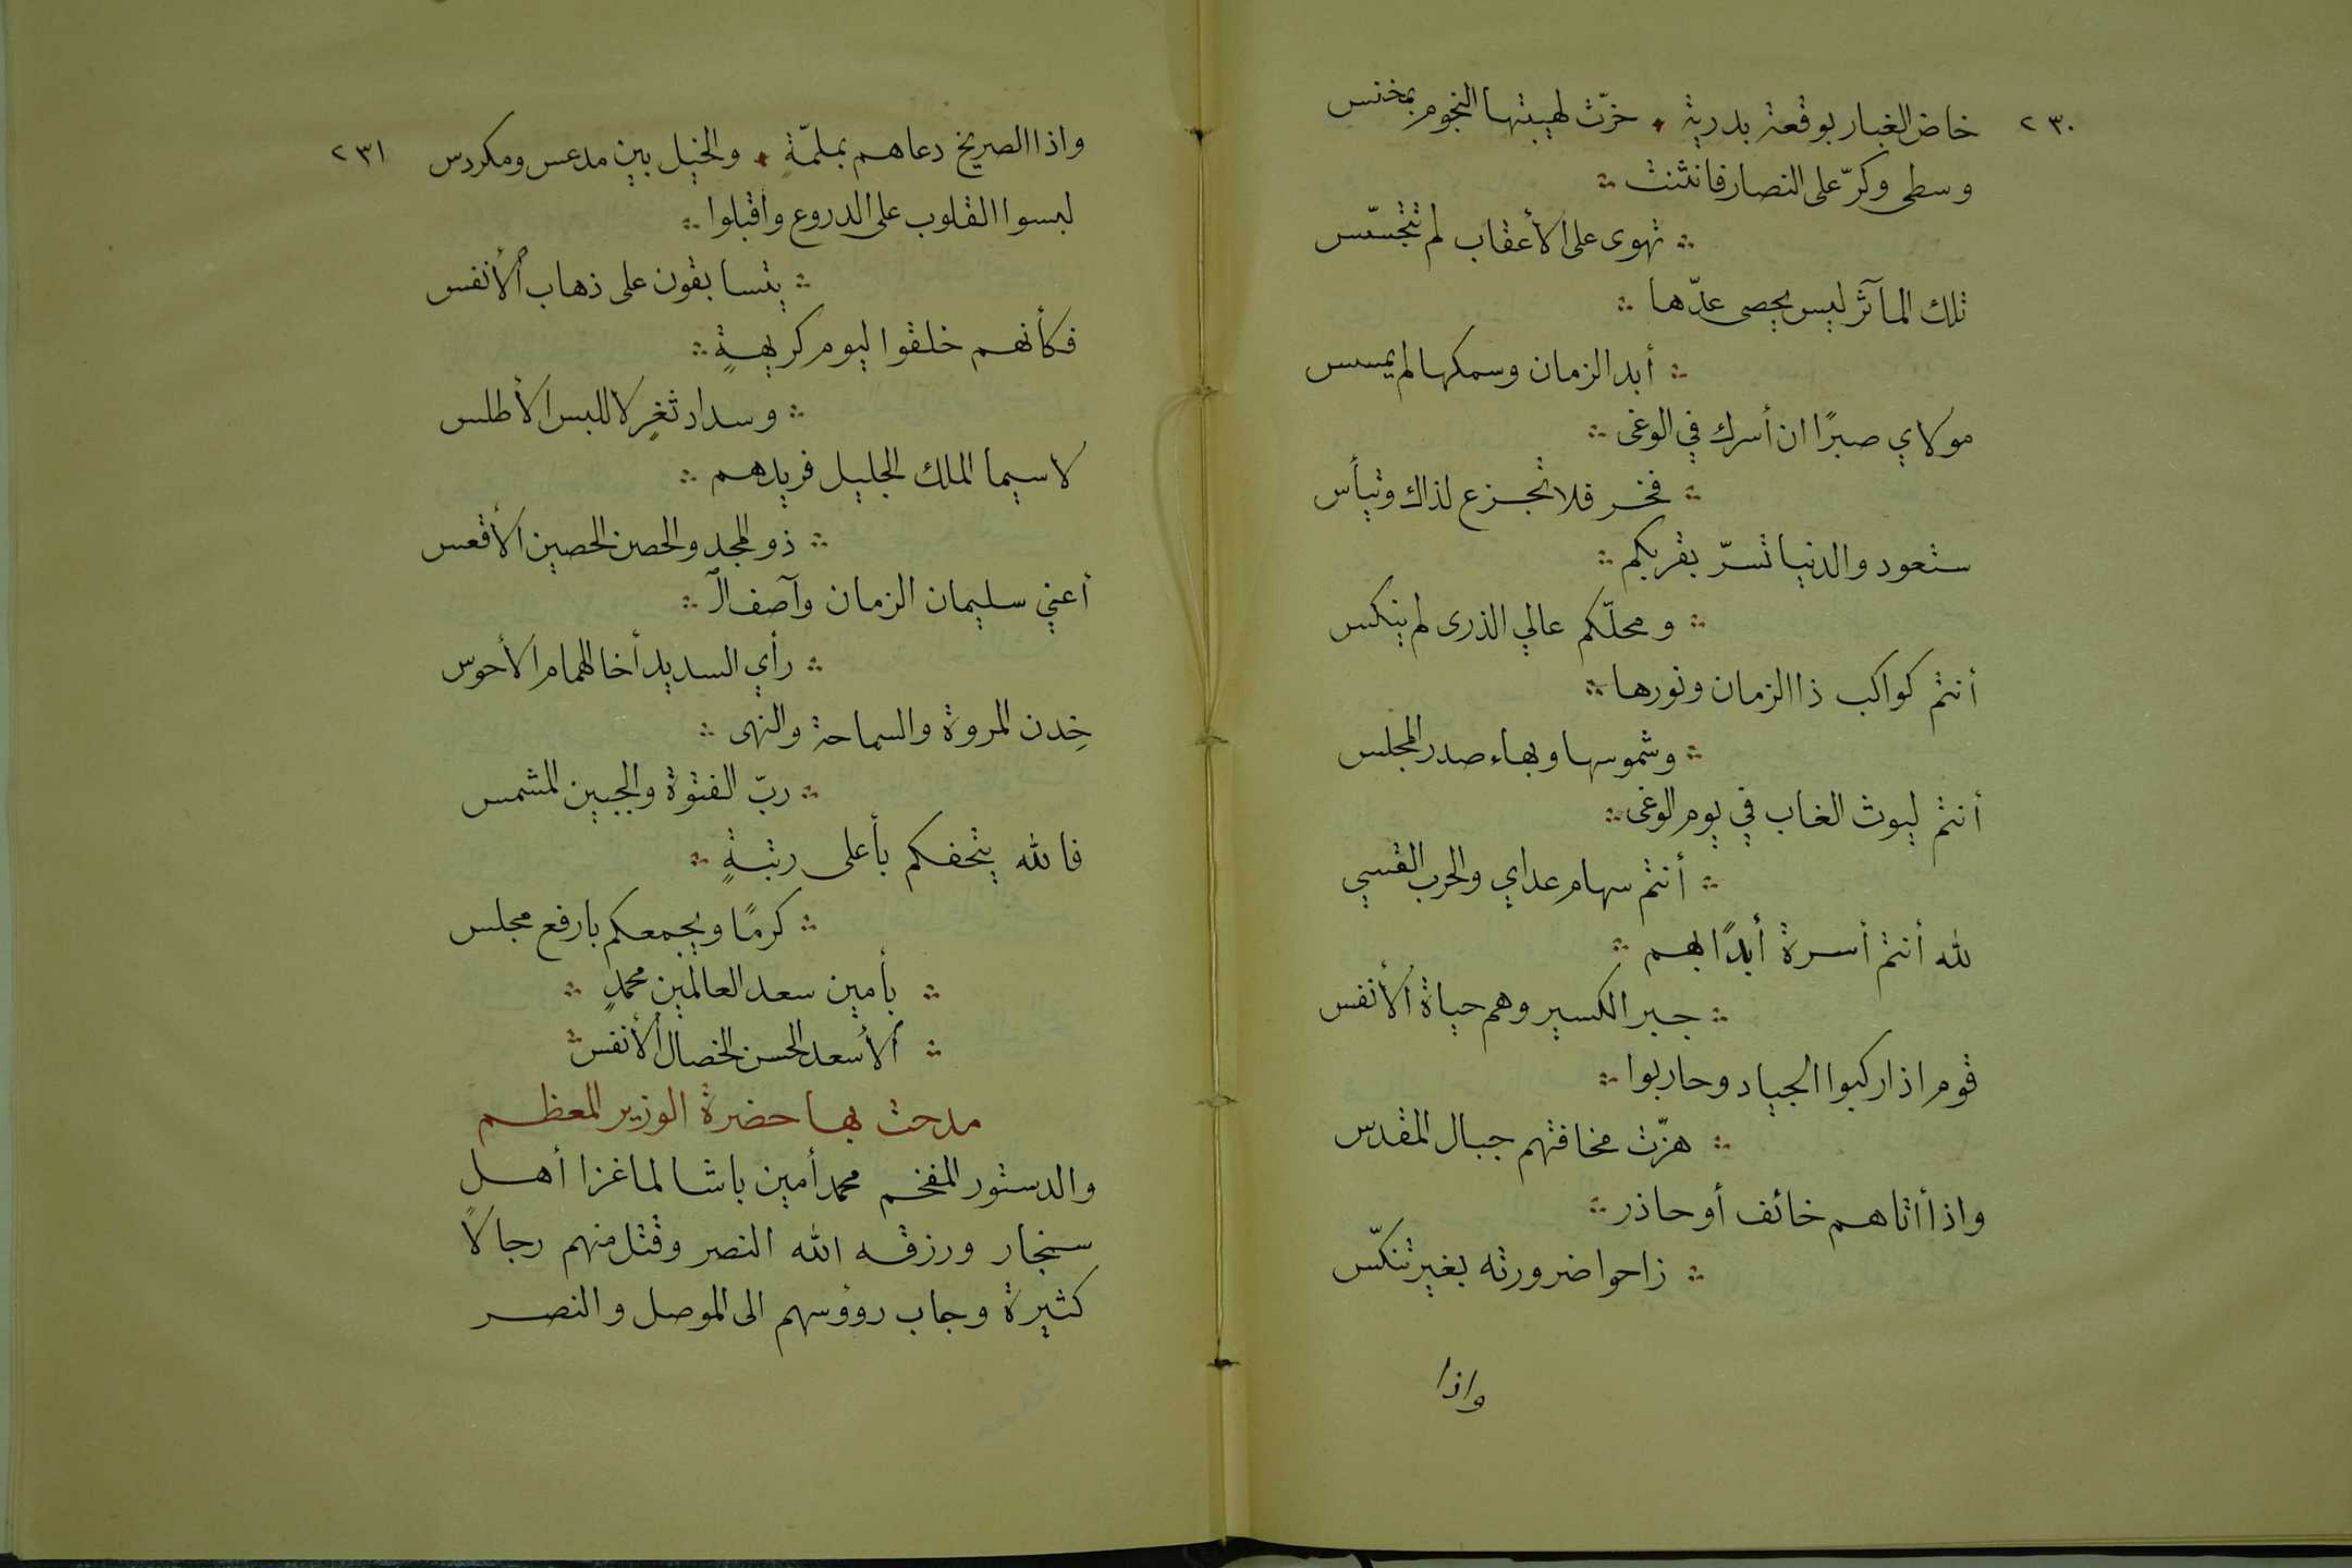 ٢٣٠
خاض الغبار بوقعة بدرية ٭ خرّت لهيبتها النجوم بمخنس
وسطى وكرّ على النصار فانثنت ∴
∴ تهوى على الأعقاب لم تتجسّس
تلك المآثر ليس يحصى عدّها ∴
∴ أبد الزمان وسمكها لم يمسس
مولاي صبرًا ان أسرك في الوغى ∴
∴ فخر فلا تجزع لذاك وتيأس
ستعود والدنيا تسرّ بقربكم ∴
∴ ومحلّكم عالي الذرى لم ينكس
أنتم كواكب ذا الزمان ونورها ∴
∴ وشموسها وبهاء صدر المجلس
أنتم ليوث الغاب في يوم الوغى ∴
∴ أنتم سهام عداي والحرب القسي
لله أنتم أسرة أبدًا بهم ∴
∴ جبر الكسير وهم حياة الأنفس
قوم اذا ركبوا الجياد وحاربوا ∴
∴ هزّت مخافتهم جبال المقدس
واذا أتاهم خائف أو حاذر ∴
∴ زاحوا ضرورته بغير تنكّس
واذا
٢٣١
واذا الصريخ دعاهم بملمّةٍ ٭ والخيل بين مدعس ومكردس
لبسوا القلوب على الدروع وأقبلوا ∴
∴ يتسابقون على ذهاب الأنفس
فكأنهم خلقوا ليوم كريهةٍ ∴
∴ وسداد ثغرٍ لا للبس الأطلس
لا سيما الملك الجليل فريدهم ∴
∴ ذو المجد والحصن الحصين الأقعس
أعني سليمان الزمان وآصف الـ ∴
∴ رأي السديد أخا الهمام الأحوس
خِدن المروة والسماحة والنهى ∴
∴ ربّ الفتوة والجبين المشمس
فالله يتحفكم بأعلى رتبةٍ ∴
∴ كرمًا ويجمعكم بارفع مجلس
∴ بأمين سعد العالمين محمدٍ ∴
∴ ألأسعد الحسن الخصال الأنفس ∴
مدحت بها حضرة الوزير المعظم
والدستور المفخم محمد أمين باشا لما غزا أهل
سنجار ورزقه الله النصر وقتل منهم رجالاً
كثيرة وجاب رؤوسهم الى الموصل والنصر